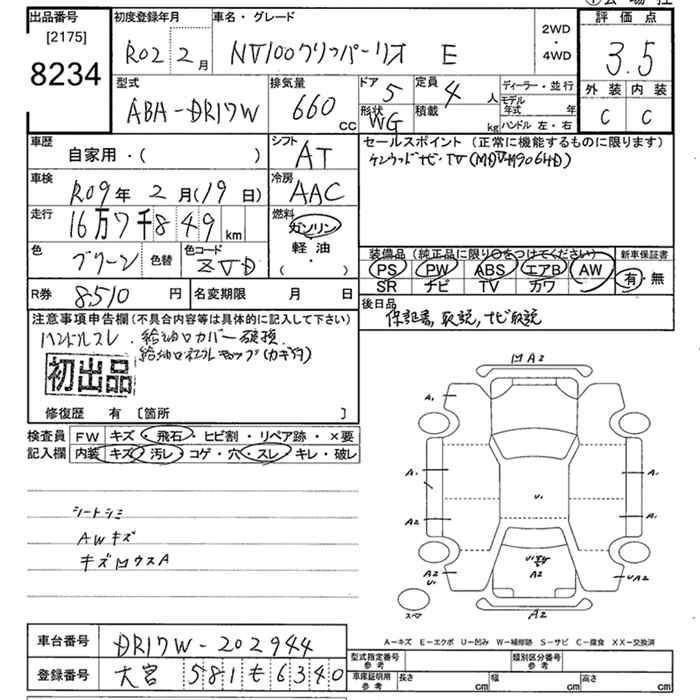 出品番号
[2175]
8234
初度登録年月
R02 2月
車名・グレード
NV100クリッパーリオ E
2WD
・
4WD
評価点
3.5
外装 内装
C C
型式
ABA-DR17W
排気量
660 cc
ドア 5
定員 4 人
形状 WG
積載 kg
ディーラー・並行
モデル年式 年
ハンドル 左・右
車歴
自家用・( )
シフト
AT
車検
R09年2月(19日)
冷房
AAC
走行
16万7千849 km
燃料
ガソリン
軽油
( ・ )
色
グリーン
色替
色コード
ZVD
R券 8,510 円
名変期限 月 日
セールスポイント (正常に機能するものに限ります)
ケンウッドナビ・TV
装備品 (純正品に限り○をつけてください)
PS PW ABS エアB AW
SR ナビ TV カワ
新車保証書
有・無
後日品
保証書, 取説, ナビ取説
注意事項申告欄 (不具合内容等は具体的に記入して下さい)
ハンドルスレ. 給油口カバー破損
初出品
修復歴 有 [箇所 ]
検査員 FW キズ・飛石・ヒビ割・リペア跡・×要
記入欄 内装 キズ・汚レ・コゲ・穴・スレ・キレ・破レ
シートシミ
AWキズ
A2
A1
A1 A1
U1
A2 A1
A2 A2 UA2
スペ
A2
A-キズ E-エクボ U-凹み W-補修跡 S-サビ C-腐食 XX-交換済
車台番号 DR17W-202944
登録番号 大宮 581 も 6340
型式指定番号 参考
類別区分番号 参考
車庫証明用 参考 長さ cm 幅 cm 高さ cm